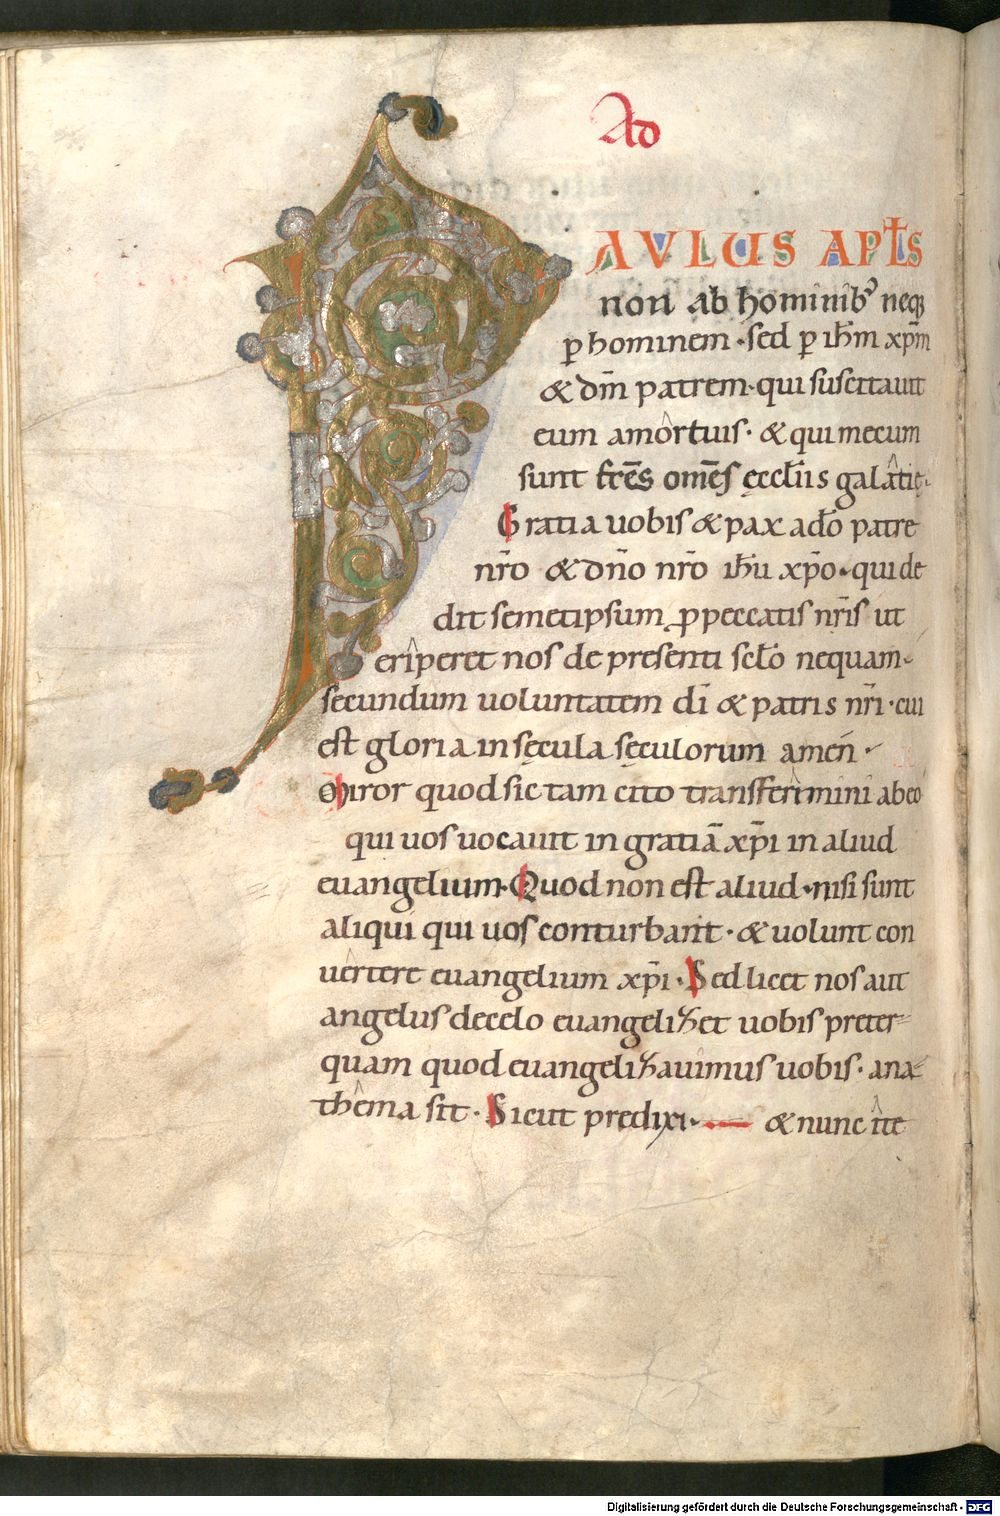 Ad
PAVLUS APƚS
non ab hominibꝰ neqꝫ
ꝑ hominem · sed ꝑ ihm̄ xp̄m
& dm̄ patrem · qui suscitauit
eum amortuis · & qui mecum
sunt fr̄es om̄es ęccƚiis galatię ·
Gratia uobis & pax a do patre
nr̄o & dn̄o nr̄o ihū xp̄o · qui de
dit semetipsum ꝓ peccatis nr̄is ut
eriperet nos de presenti scƚo nequam ·
secundum uoluntatem dī & patris nr̄i · cui
est gloria in sęcula sęculorum amen̄ ·
Miror quod sic tam cito transferimini ab eo
qui uos uocauit in gratiā xp̄i in aliud
euangelium · Quod non est aliud · nisi sunt
aliqui qui uos conturbant · & uolunt con
uertere euangelium xp̄i · Sed licet nos aut
angelus decęlo euangelizet uobis preter-
quam quod euangelizauimus uobis · ana-
thema sit · Sicut predixi · & nunc ite
Digitalisierung gefördert durch die Deutsche Forschungsgemeinschaft - DFG